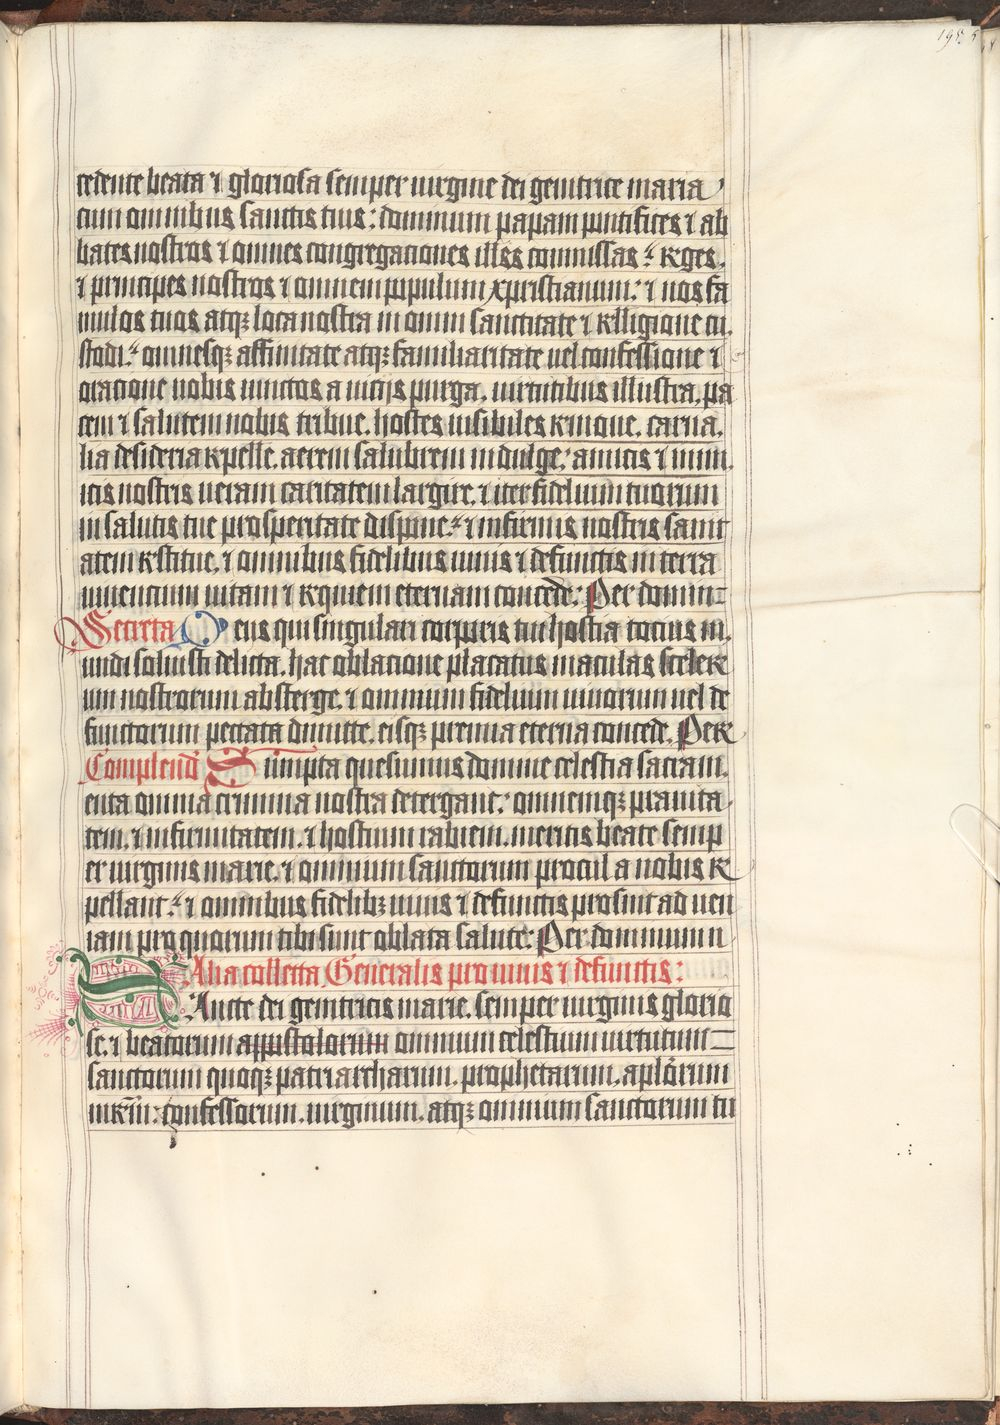 195
cedente beata ⁊ gloriosa semper uirgine dei genitrice maria
cum omnibus sanctis tuis: dominum papam pontifices ⁊ ab
bates nostros ⁊ omnes congregaciones illis commissas: reges.
⁊ principes nostros ⁊ omnem populum xpristianum: ⁊ nos fa
mulos tuos atqꝫ loca nostra in omni sanctitate ⁊ relligione cu,
stodi: omnesqꝫ affinitate atqꝫ familiaritate uel confessione ⁊
oracione nobis iunctos a uicijs purga. uirtutibus illustra. pa
cem ⁊ salutem nobis tribue. hostes uisibiles remoue. carna,
lia desideria repelle. aerem salubrem indulge: amicis ⁊ inim,
icis nostris ueram caritatem largire. ⁊ iter fidelium tuorum
in salutis tue prosperitate dispone: ⁊ infirmis nostris sanit
atem restitue. ⁊ omnibus fidelibus uiuis ⁊ defunctis in terra
uiuencium uitam ⁊ requiem eternam concede: Per domin
Secreta Deus qui singulari corporis tui hostia tocius m,
undi soluisti delicta. hac oblacione placatus maculas sceler
um nostrorum absterge. ⁊ omnium fidelium uiuorum uel de
functorum peccata dimitte. eisqꝫ premia eterna concede. Per
Complend Sumpta quesumus domine celestia sacram,
enta omnia crimina nostra detergant: omnemqꝫ prauita
tem. ⁊ infirmitatem. ⁊ hostium rabiem. meritis beate semp
er uirginis marie. ⁊ omnium sanctorum procul a nobis re
pellant: ⁊ omnibus fidelibꝫ uiuis ⁊ defunctis prosint ad uen
iam pro quorum tibi sunt oblata salute: Per dominum n
Alia collecta Generalis pro uiuis ⁊ defunctis:
SAncte dei genitricis marie. semper uirginis glorio
se. ⁊ beatorum appostolorum omnium celestium uirtutum
sanctorum quoqꝫ patriarcharum. prophetarum. aplorum
mrm: confessorum. uirginum. atqꝫ omnium sanctorum tu